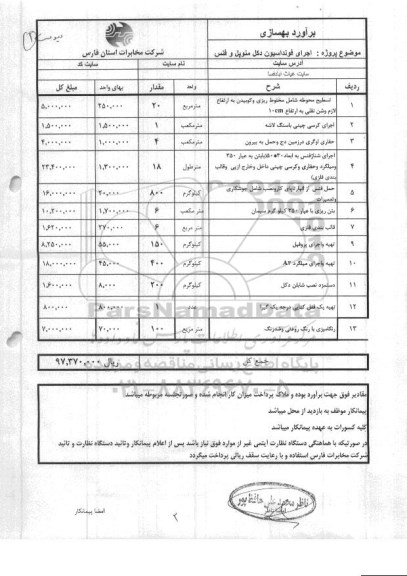 پیوست (۲)
برآورد بهسازی
شرکت مخابرات استان فارس
موضوع پروژه : اجرای فونداسیون دکل منوپل و فنس
آدرس سایت نام سایت سایت کد
ردیف شرح واحد مقدار بهای واحد مبلغ کل
۱ تسطیح محوطه شامل مخلوط ریزی وکوبیدن به ارتفاع مترمربع ۲۰ ۲۵۰,۰۰۰ ۵,۰۰۰,۰۰۰
لازم وشن نقلی به ارتفاع ۱۰cm
۲ اجرای کرسی چینی باسنگ لاشه مترمکعب ۱ ۱,۵۰۰,۰۰۰ ۱,۵۰۰,۰۰۰
۳ حفاری لوگری درزمین دج وحمل به بیرون مترمکعب ۴ ۱,۰۰۰,۰۰۰ ۴,۰۰۰,۰۰۰
۴ مترطول ۱۸ ۱,۳۰۰,۰۰۰ ۲۳,۴۰۰,۰۰۰
میلگرد وحفاری وکرسی چینی داخل وخارج ازپی وقالب
بندی فلزی
۵ حمل فنس از انبار تاپای کار ونصب شامل جوشکاری کیلوگرم ۸۰۰ ۲۰,۰۰۰ ۱۶,۰۰۰,۰۰۰
۶ بتن ریزی با عیار ۲۵۰ کیلوگرم سیمان متر مکعب ۶ ۱,۷۰۰,۰۰۰ ۱۰,۲۰۰,۰۰۰
۷ قالب بندی فلزی متر مربع ۶ ۲۷۰,۰۰۰ ۱,۶۲۰,۰۰۰
۹ تهیه واجرای پروفیل کیلوگرم ۱۵۰ ۵۵,۰۰۰ ۸,۲۵۰,۰۰۰
۱۰ تهیه واجرای میلگرد A۲ کیلوگرم ۴۰۰ ۴۵,۰۰۰ ۱۸,۰۰۰,۰۰۰
۱۱ دستمزد نصب شابلن دکل کیلوگرم ۲۰۰ ۸,۰۰۰ ۱,۶۰۰,۰۰۰
۱۲ تهیه یک قفل کتابی درجه یک عدد ۱ ۸۰۰,۰۰۰ ۸۰۰,۰۰۰
۱۳ رنگامیزی با رنگ روغنی وضدزنگ متر مربع ۱۰۰ ۷۰,۰۰۰ ۷,۰۰۰,۰۰۰
جمع کل ریال ۹۷,۳۷۰,۰۰۰
ParsNamadData
پایگاه اطلاع رسانی مناقصه و مزایده
۰۲۱-۸۸۳۴۹۶۷۰-۵
مقادیر فوق جهت برآورد بوده و ملاک پرداخت میزان کار انجام شده و صورتجلسه مربوطه میباشد
پیمانکار موظف به بازدید از محل میباشد
کلیه کسورات به عهده پیمانکار میباشد
در صورتیکه با هماهنگی دستگاه نظارت آیتمی غیر از موارد فوق نیاز باشد پس از اعلام پیمانکار وتائید دستگاه نظارت و تائید
شرکت مخابرات فارس استفاده و با رعایت سقف ریالی پرداخت میگردد
امضا پیمانکار
۲